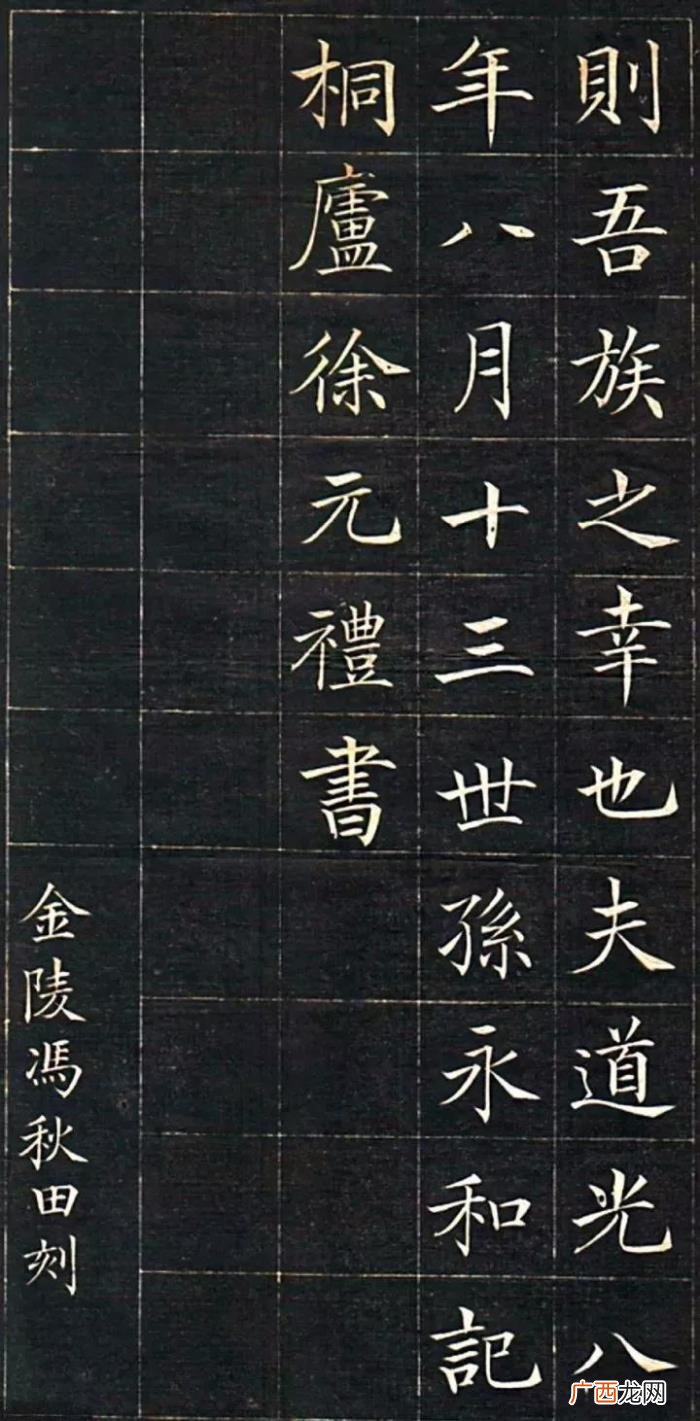 則吾族之幸也夫道光八
年八月十三世孫永和記
桐廬徐元禮書
金陵馮秋田刻
广西龙网